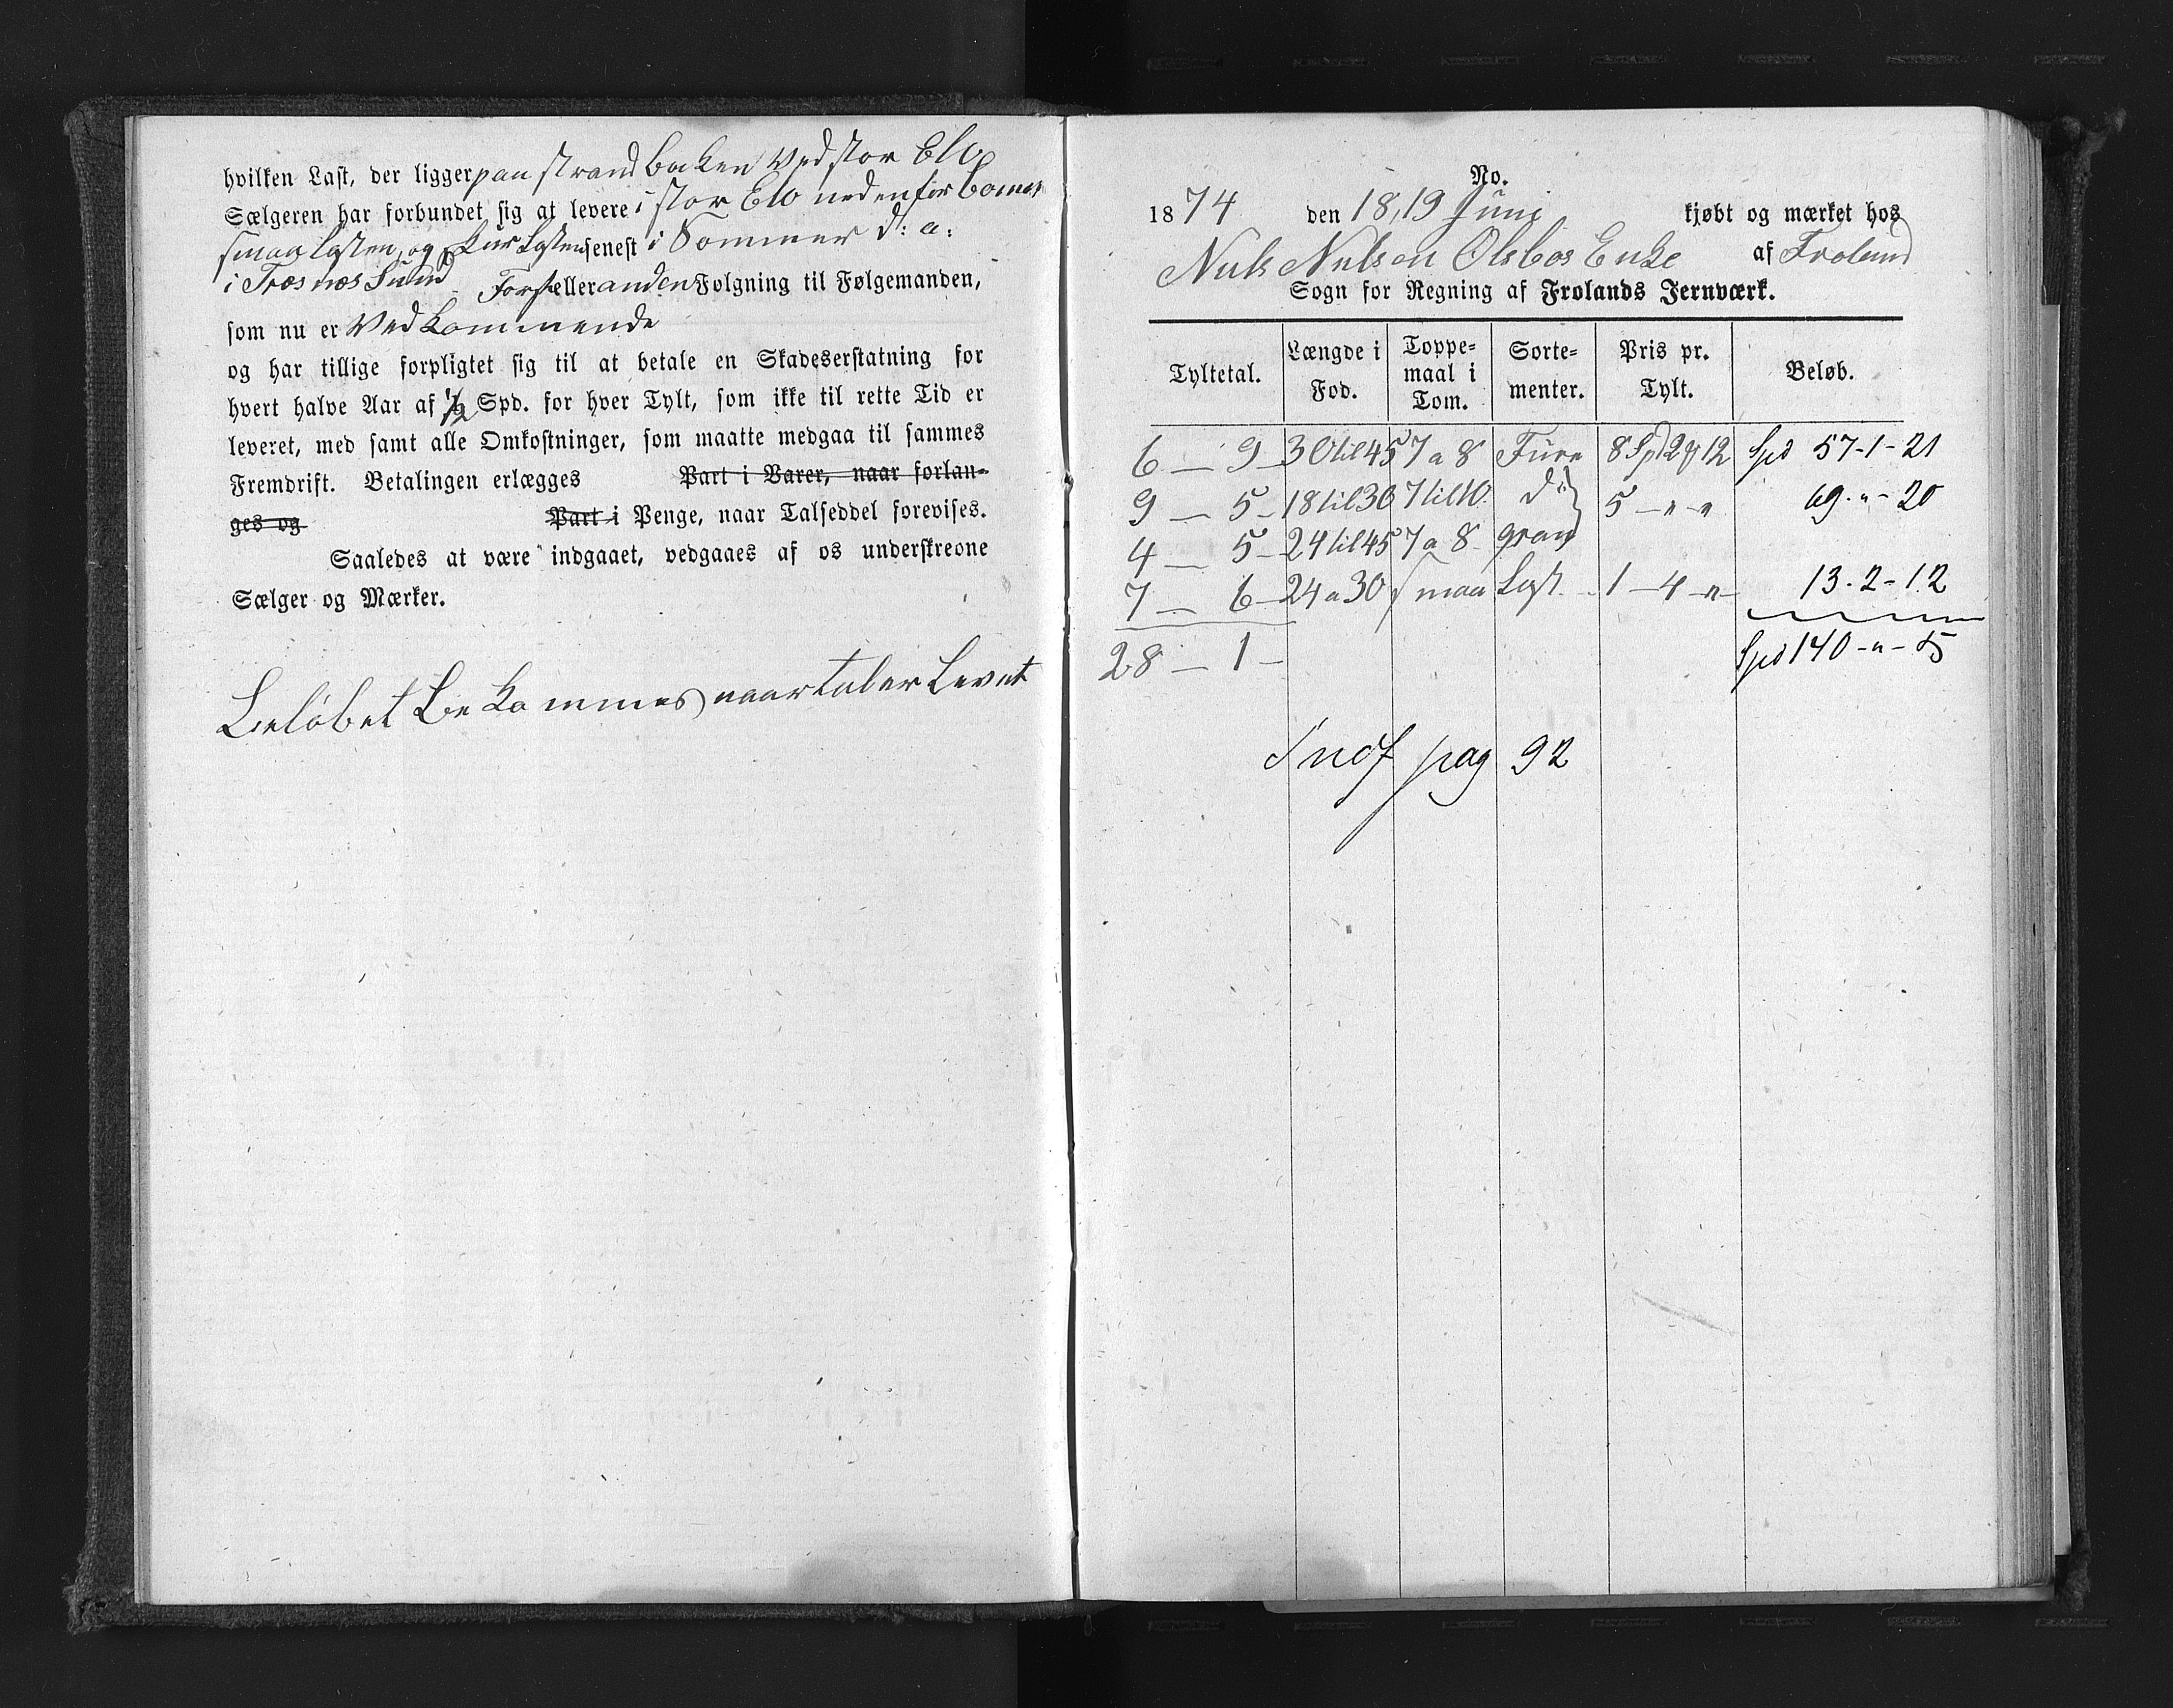 hvilken Last, der ligger paa strandbacken Ved stor Elv
Sælgeren har forbundet sig at levere i stor Elv nedenfor bomen
smaa lasten, og senest i Sommer d: a:
i Træsnæs Sund Forst eller anden Følgning til Følgemanden,
som nu er Vedkommende
og har tillige forpligtet sig til at betale en Skadeserstatning for
hvert halve Aar af 1/2 Spd. for hver Tylt, som ikke til rette Tid er
leveret, med samt alle Omkostninger, som maatte medgaa til sammes
Fremdrift. Betalingen erlægges Part i Varer, naar forlan-
ges og Part i Penge, naar Talseddel forevises.
Saaledes at være indgaaet, vedgaaes af os underskrevne
Sælger og Mærker.
Beløbet Bekommes naar tal er Levert
No.
1874 den 18, 19 Juni kjøbt og mærket hos
Niels Nielsen Olsbos Enke af Froland
Sogn for Regning af Frolands Jernværk.
Tyltetal. Længde i Fod. Toppe-maal i Tom. Sorte-menter. Pris pr. Tylt. Beløb.
6 — 9 — 30 til 45 7 a 8 Furu 8 Spd 2 ₰ 12 Spd 57-1-21
9 — 5 — 18 til 36 7 til 10 do 5 — " — " 69-"-20
4 — 5 — 24 til 45 7 a 8 gran
7 — 6 — 24 a 30 smaa Last 1 — 4 — " — 13-2-12
28 — 1 — Spd 140-"-5
Indf pag 92